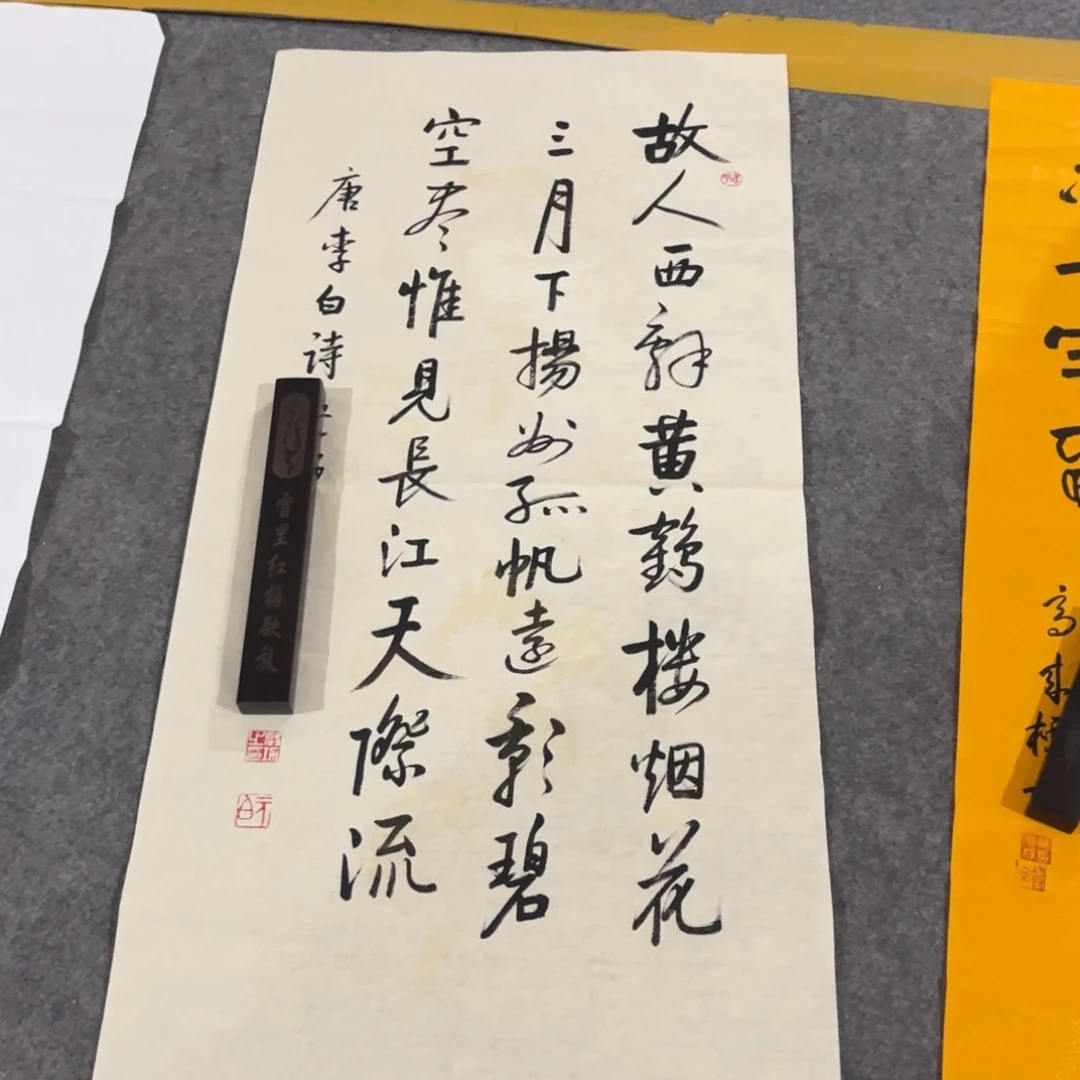 故人西辞黄鹤楼烟花
三月下揚州孤帆遠影碧
空尽惟見長江天際流
唐李白诗
雪里红梅歌放
高